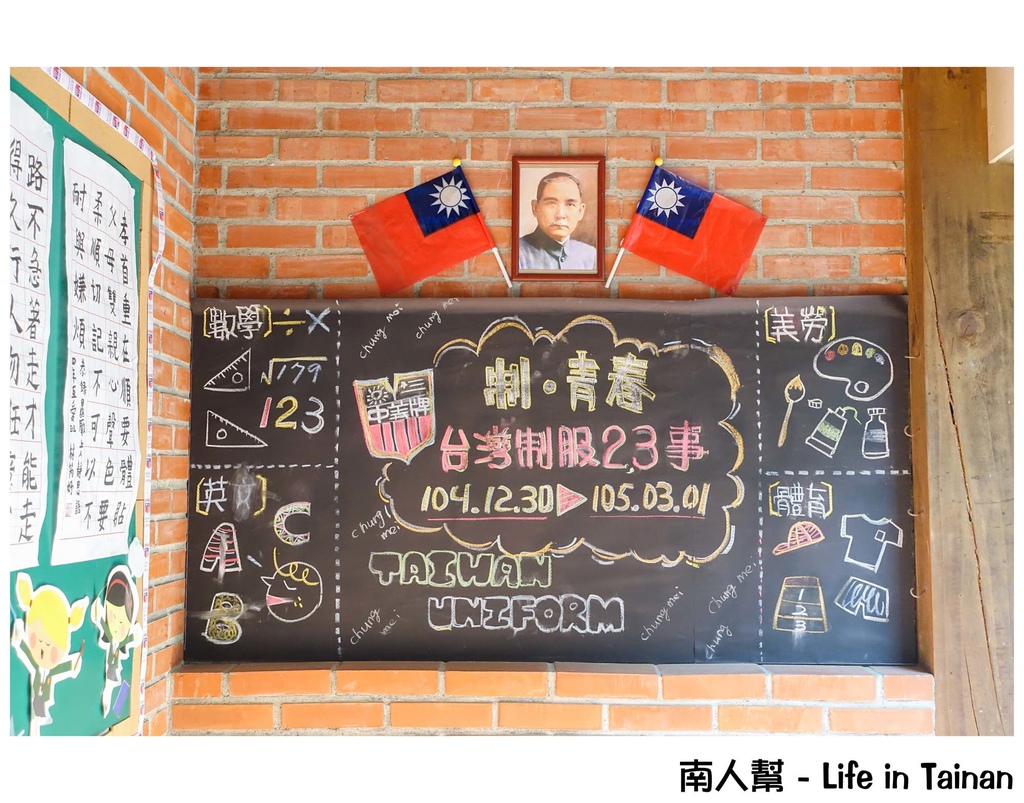 路不急著走才能
孝首重在順要
父母雙親心聲色
柔順切記不可以不要
耐與嫌煩
[數學]÷×
√179
123
chung mei
chung mei
中美牌
制。青春
台灣制服23事
104.12.30▶105.03.01
chung mei
TAIWAN
UNIFORM
chung mei
chung mei
chung mei
chung
[英文]
A
B
C
[美勞]
[體育]
1
2
3
南人幫 - Life in Tainan